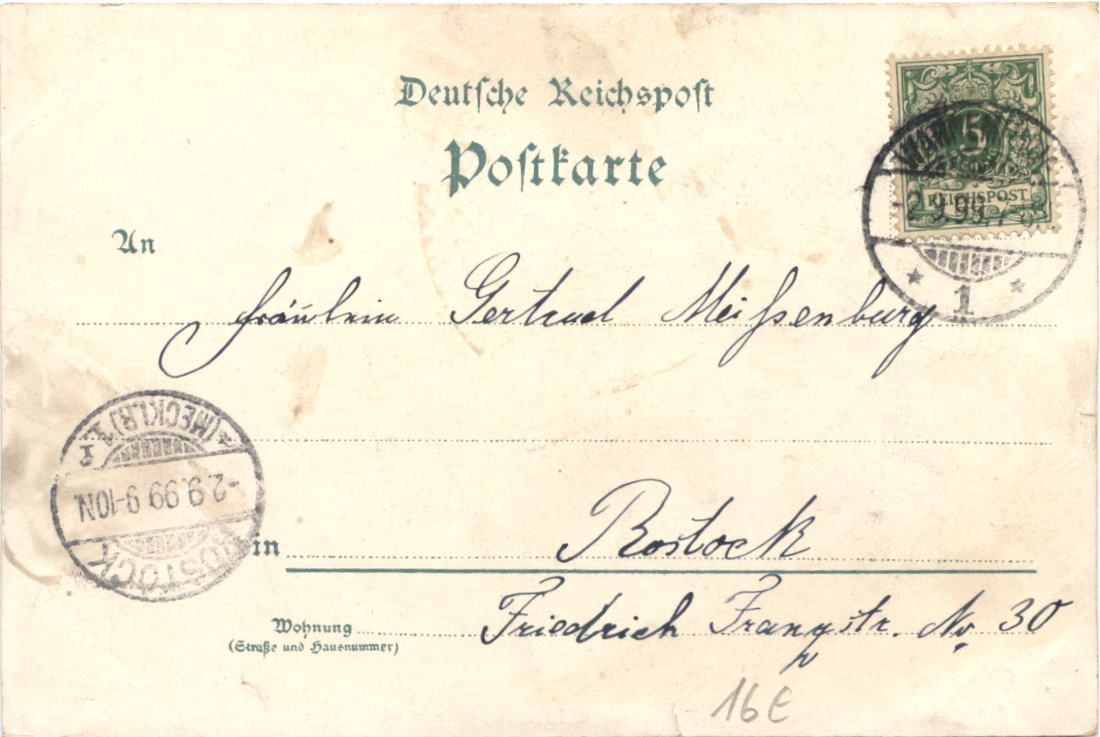 Deutsche Reichspost
Postkarte
5
REICHSPOST
-2.9.99.7-
* 1 *
An
Fräulein Gertrud Meißenburg
ROSTOCK
-2.9.99 9-10N.
(MECKLB) 1.
in Rostock
Wohnung
(Straße und Hausnummer)
Friedrich Franzstr. No 30
16€